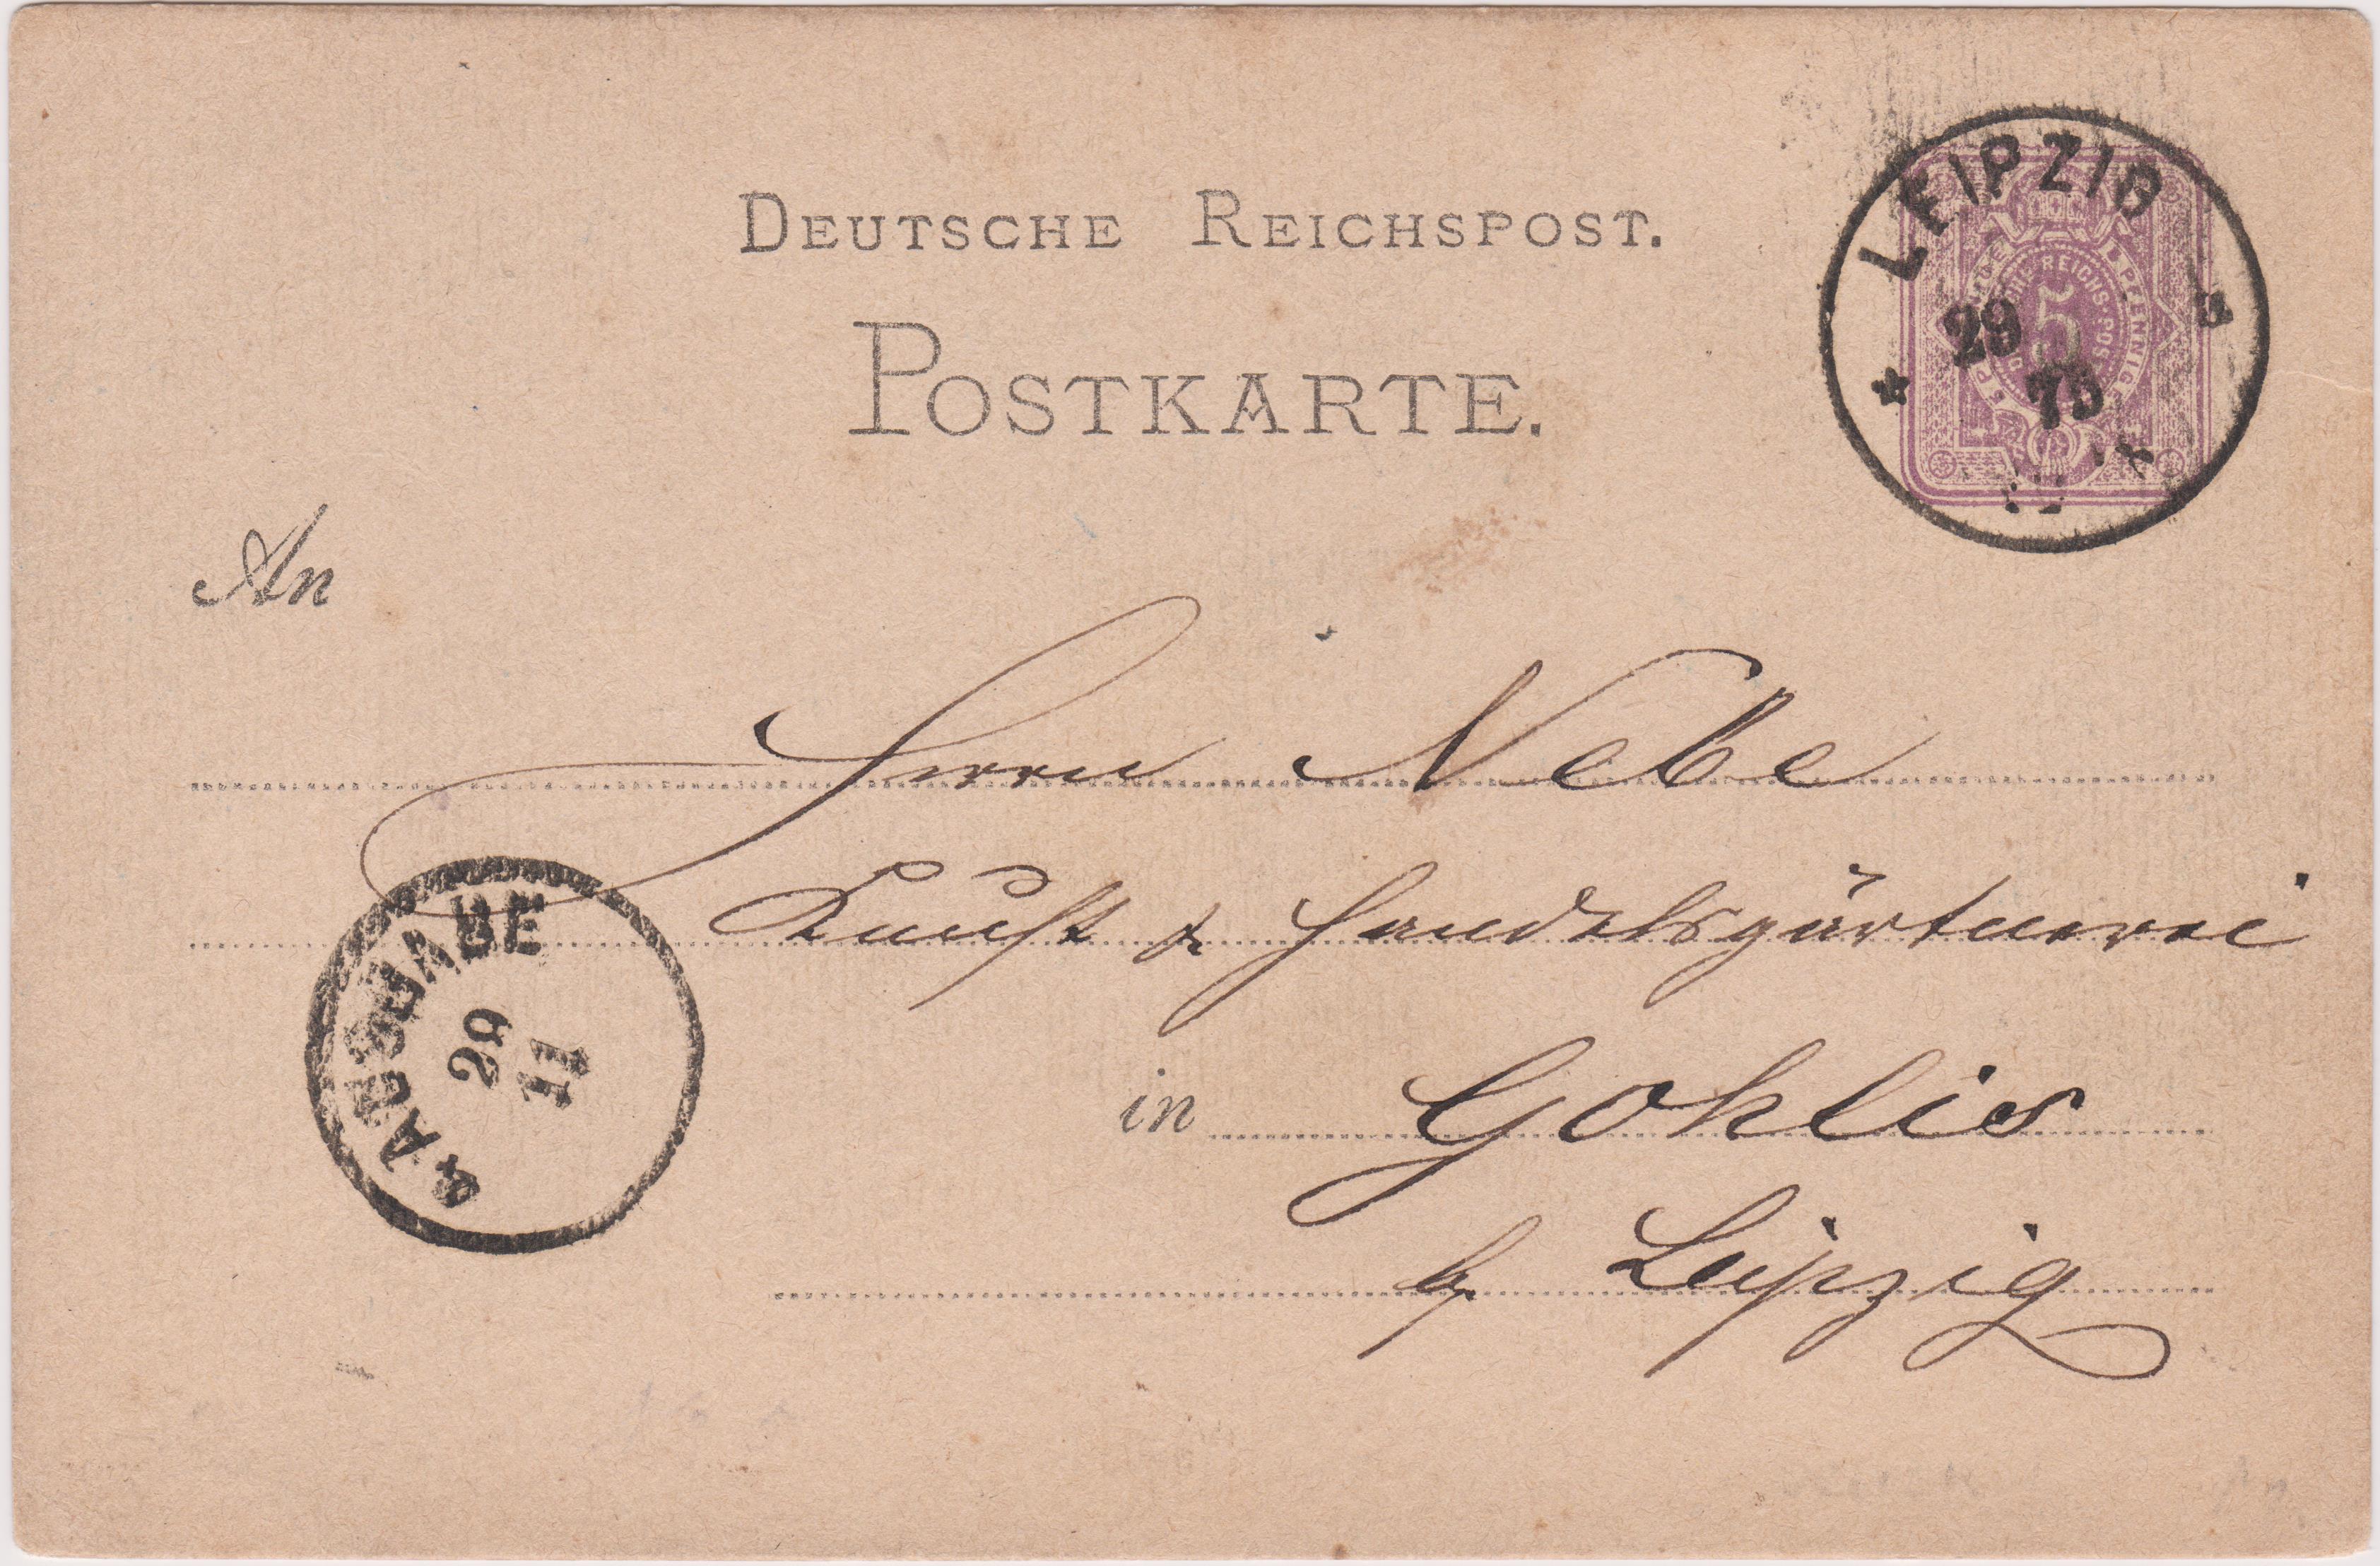 DEUTSCHE REICHSPOST.
POSTKARTE.
LEIPZIG
29
75
5
REICHS-POST
PFENNIG
An
Herrn Nebe
Kunst & Handelsgärtnerei
in Gohlis
b. Leipzig
AUSGABE
29
11